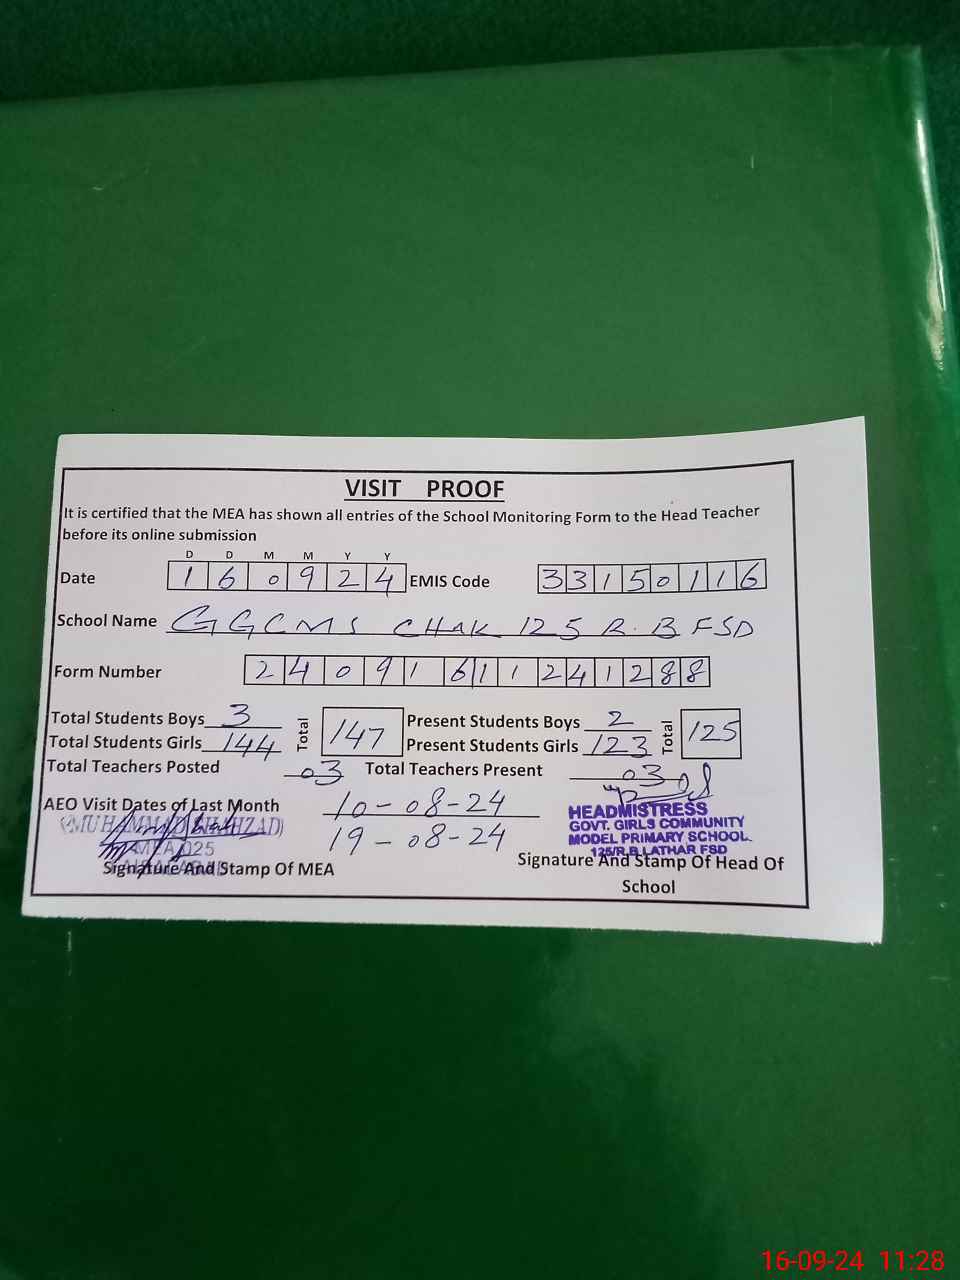 VISIT PROOF
It is certified that the MEA has shown all entries of the School Monitoring Form to the Head Teacher
before its online submission
D D M M Y Y
Date 160924 EMIS Code 33150116
School Name GGCMS CHAK 125 R.B FSD
Form Number 24091611241288
Total Students Boys 3 Total 147 Present Students Boys 2 Total 125
Total Students Girls 144 Present Students Girls 123
Total Teachers Posted 03 Total Teachers Present 03
AEO Visit Dates of Last Month 10-08-24
19-08-24
(MUHAMMAD SHAHZAD)
MEA 025
Signature And Stamp Of MEA
HEADMISTRESS
GOVT. GIRLS COMMUNITY
MODEL PRIMARY SCHOOL
125/R.B LATHAR FSD
Signature And Stamp Of Head Of
School
16-09-24 11:28